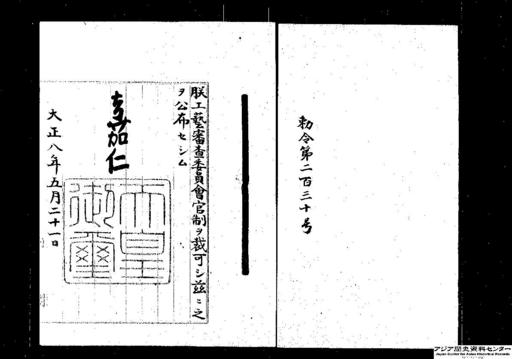 勅令第二百三十号
朕工藝審査委員會官制ヲ裁可シ茲ニ之
ヲ公布セシム
嘉仁
天皇御璽
大正八年五月二十一日
アジア歴史資料センター
Japan Center for Asian Historical Records